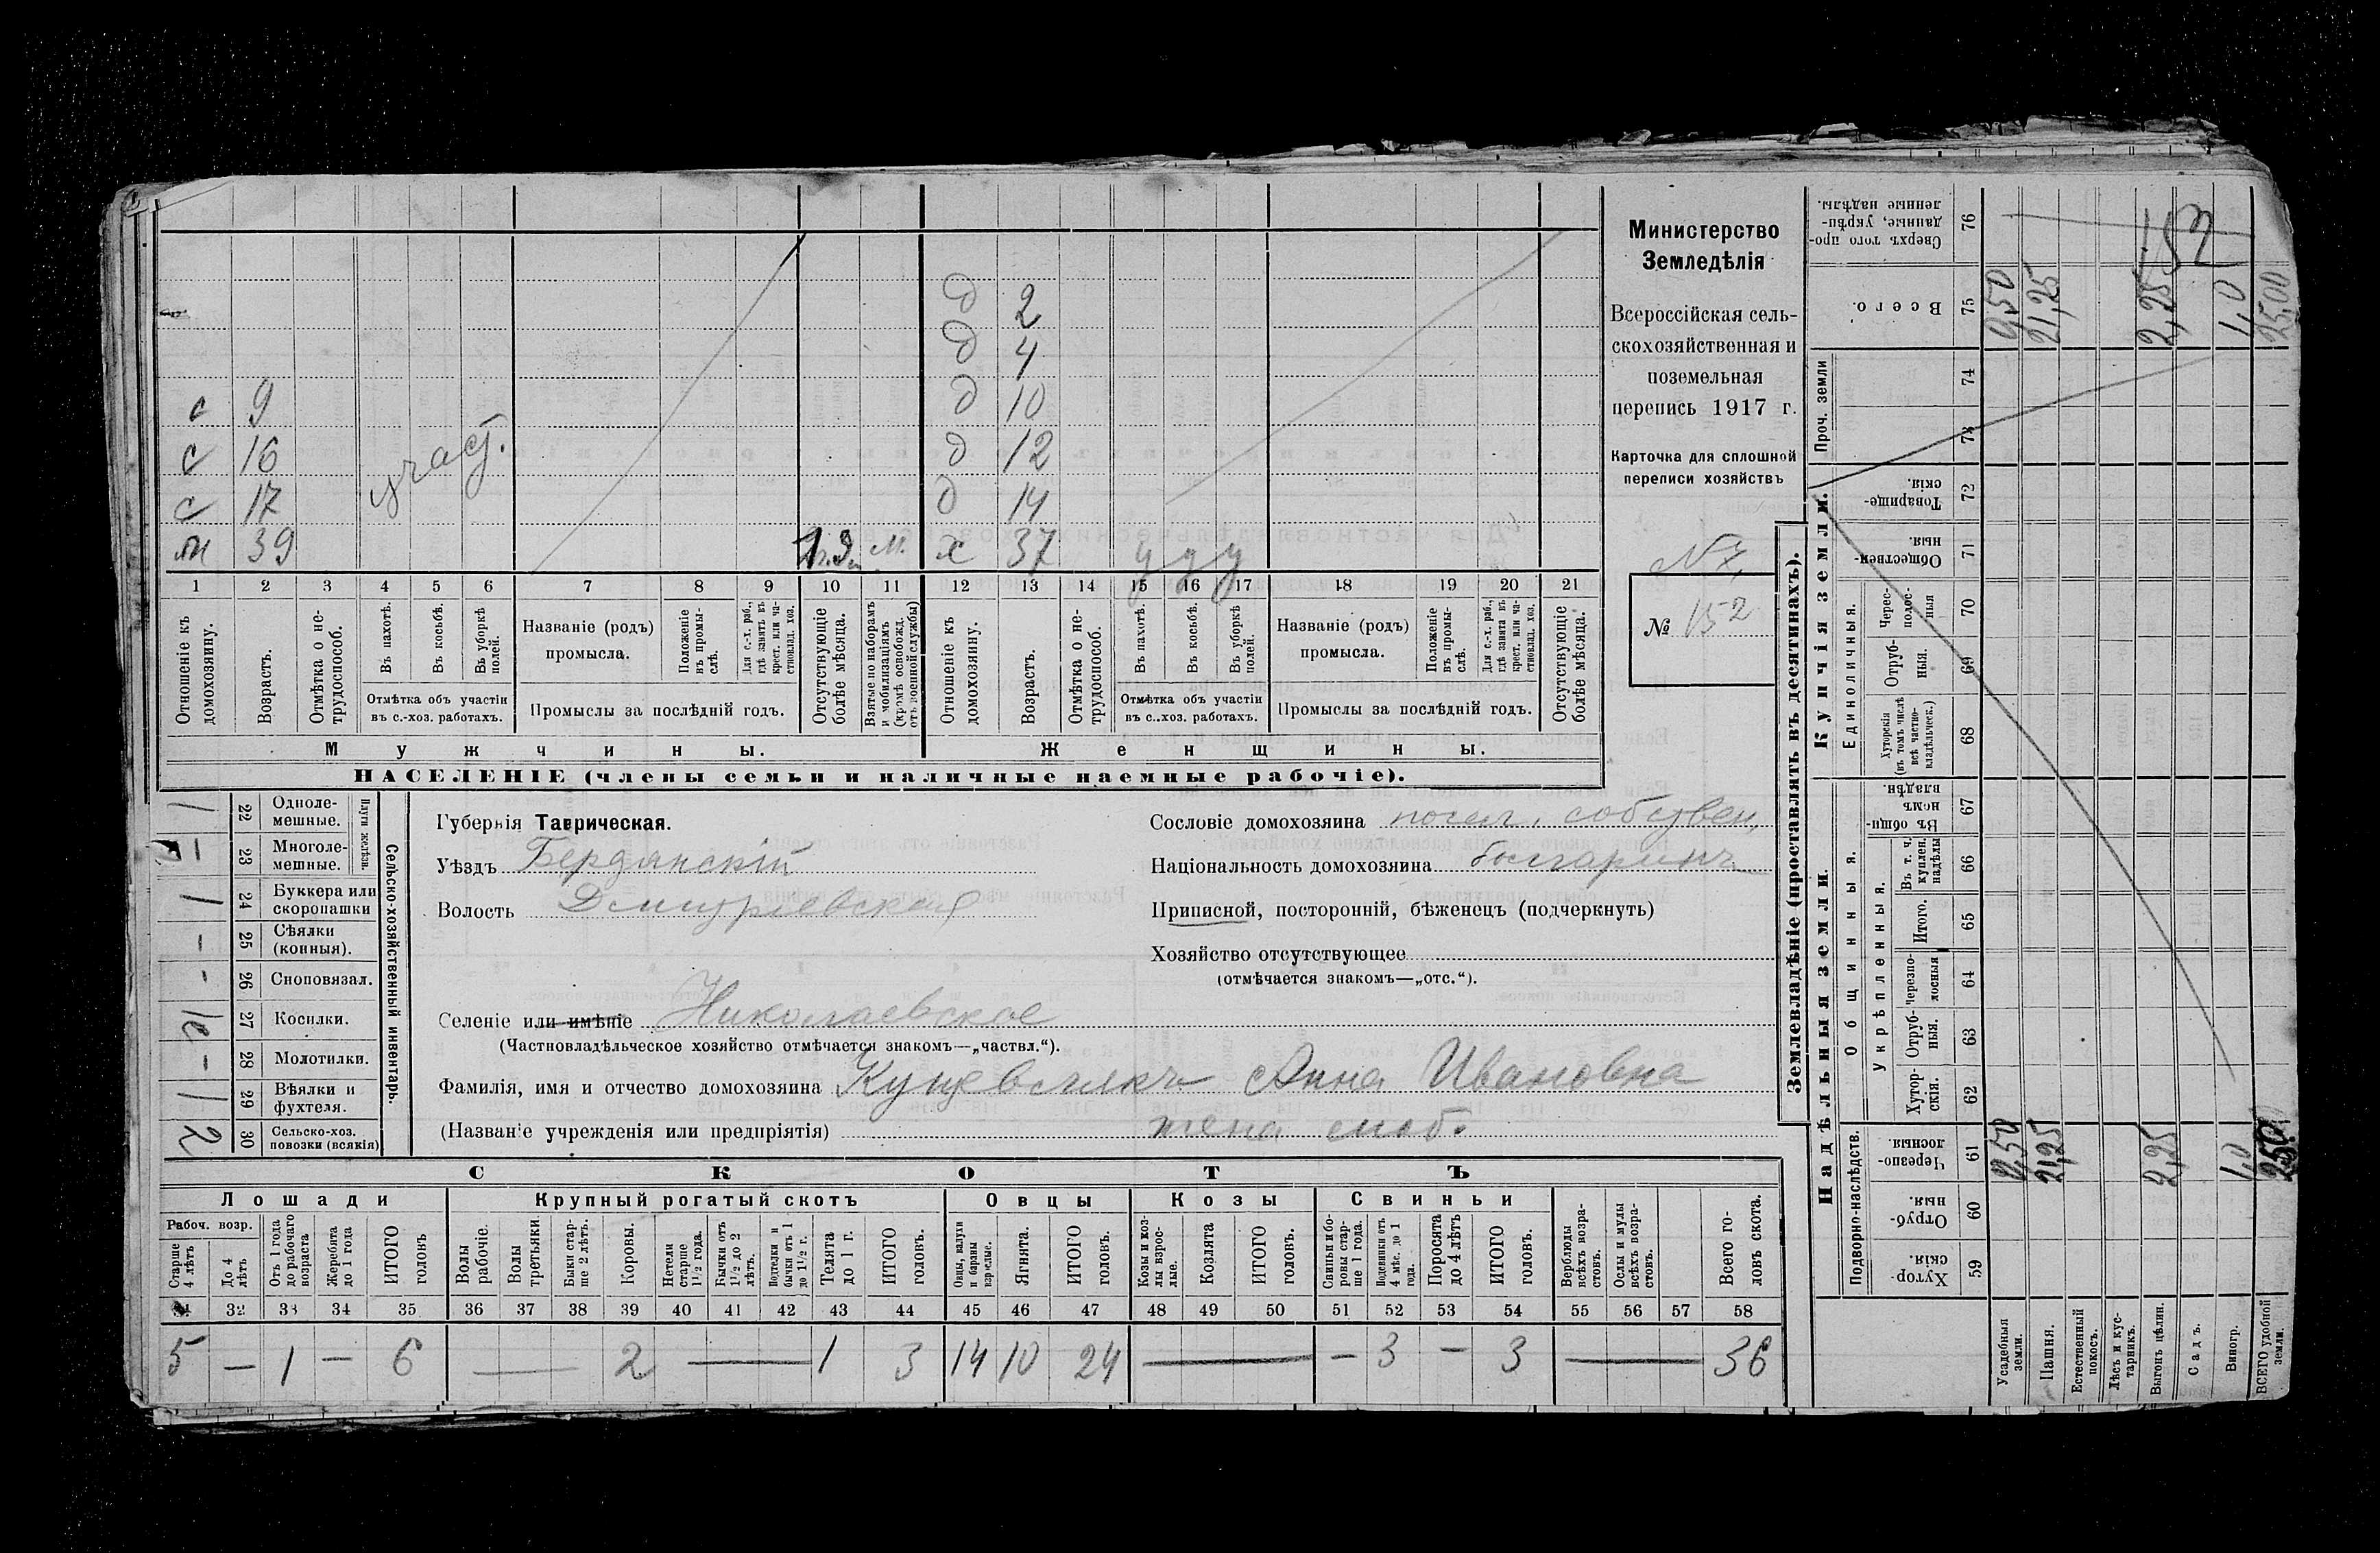 Министерство
Земледѣлія
Всероссійская сель-
скохозяйственная и
поземельная
перепись 1917 г.
Карточка для сплошной
переписи хозяйствъ
№ 152
152
д 2
д 4
с 9 д 10
с 16 д 12
с 17 участ. д 14
м 39 м. х 37 у у у
1 2 3 4 5 6 7 8 9 10 11 12 13 14 15 16 17 18 19 20 21
Отношеніе къ домохозяину.
Возрастъ.
Отмѣтка о не-трудоспособ.
Въ пахотѣ.
Въ косьбѣ.
Въ уборкѣ полей.
Отмѣтка объ участіи
въ с.-хоз. работахъ.
Названіе (родъ)
промысла.
Положеніе въ промы-слѣ.
Для с.-х. раб., гдѣ занятъ въ крест. или ча-стновлад. хоз.
Промыслы за послѣдній годъ.
Отсутствующіе болѣе мѣсяца.
Взятые по наборамъ и мобилизаціямъ (кромѣ освобожд. отъ военной службы)
Отношеніе къ домохозяину.
Возрастъ.
Отмѣтка о не-трудоспособ.
Въ пахотѣ.
Въ косьбѣ.
Въ уборкѣ полей.
Отмѣтка объ участіи
въ с..хоз. работахъ.
Названіе (родъ)
промысла.
Положеніе въ промы-слѣ.
Для с.-х. раб., гдѣ занята въ крест. или ча-стновлад. хоз.
Промыслы за послѣдній годъ.
Отсутствующіе болѣе мѣсяца.
Мужчины. Женщины.
НАСЕЛЕНІЕ (члены семьи и наличные наемные рабочіе).
Сельско-хозяйственный инвентарь.
Плуги желѣзн.
1 22 Одноле-мешные.
– 23 Многоле-мешные.
1 24 Буккера или скоропашки
- 25 Сѣялки (конныя).
- 26 Сноповязал.
27 Косилки.
- 28 Молотилки.
1 29 Вѣялки и фухтеля.
2 30 Сельско-хоз. повозки (всякія)
Губернія Таврическая.
Уѣздъ Бердянскій
Волость Дмитріевская
Селеніе или имѣніе Николаевское
(Частновладѣльческое хозяйство отмѣчается знакомъ—„частвл.“).
Фамилія, имя и отчество домохозяина Анна Ивановна
(Названіе учрежденія или предпріятія) жена моб.
Сословіе домохозяина посел. собствен.
Національность домохозяина болгаринъ
Приписной, посторонній, бѣженецъ (подчеркнуть)
Хозяйство отсутствующее
(отмѣчается знакомъ—„отс.“).
СКОТЪ
Лошади Крупный рогатый скотъ Овцы Козы Свиньи
Рабоч. возр.
Старше 4 лѣтъ
До 4 лѣтъ
Отъ 1 года до рабочаго возраста
Жеребята до 1 года
ИТОГО головъ
Волы рабочіе
Волы третьяки
Быки стар-ше 2 лѣтъ.
Коровы.
Нетели старше 1 1/2 года.
Бычки отъ 1 1/2 до 2 лѣтъ.
Подтелки и бычки отъ 1 до 1 1/2 г.
Телята до 1 г.
ИТОГО головъ.
Овцы, валухи и бараны взрослые.
Ягнята.
ИТОГО головъ.
Козы и коз-лы взрос-лые.
Козлята
ИТОГО головъ.
Свиньи и бо-ровы стар-ше 1 года.
Подсвинки отъ 4 мѣс. до 1 года.
Поросята до 4 лѣтъ
ИТОГО головъ.
Верблюды всѣхъ возра-стовъ.
Ослы и мулы всѣхъ возра-стовъ.
Всего го-ловъ скота.
31 32 33 34 35 36 37 38 39 40 41 42 43 44 45 46 47 48 49 50 51 52 53 54 55 56 57 58
5 – 1 – 6 — 2 — 1 3 14 10 24 — – 3 – 3 — 36
Землевладѣніе (проставлять въ десятинахъ).
Купчія земли.
Надѣльныя земли.
Сверхъ того про-данные, укрѣп-ленные надѣлы. 76
Всего. 75 21,25 2,25 1,0 25,00
Проч. земли 74 73
Товарище-скія. 72
Обществен-ныя. 71
Единоличныя.
Черес-полос-ныя 70
Отруб-ныя. 69
Хуторскія (въ томъ числѣ всѣ частно-владѣльческ.) 68
Общинныя.
Въ общи-номъ владѣн. 67
Укрѣпленныя.
Въ т. ч. куплен. надѣлы 66
Итого. 65
Черезпо-лосныя 64
Отруб-ныя. 63
Хутор-скія. 62
Подворно-наслѣдств.
Черезпо-лосныя. 61 21,25 2,25 1,0
Отруб-ныя. 60
Хутор-скія. 59
Усадебныя земли.
Пашня.
Естественный покосъ.
Лѣсъ и кус-тарникъ.
Выгонъ цѣлин.
Садъ.
Виногр.
ВСЕГО удобной земли.